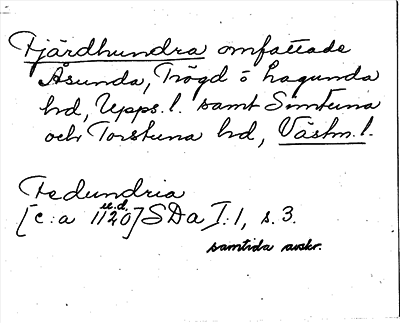 Fjärdhundra omfattade
Åsunda, Trögd o Lagunda
hd, Upps. l. samt Simtuna
och Torstuna hd, Västm. l.
Fedundria
[c:a u.d. 1120] SDa I:1, s. 3.
samtida avskr.